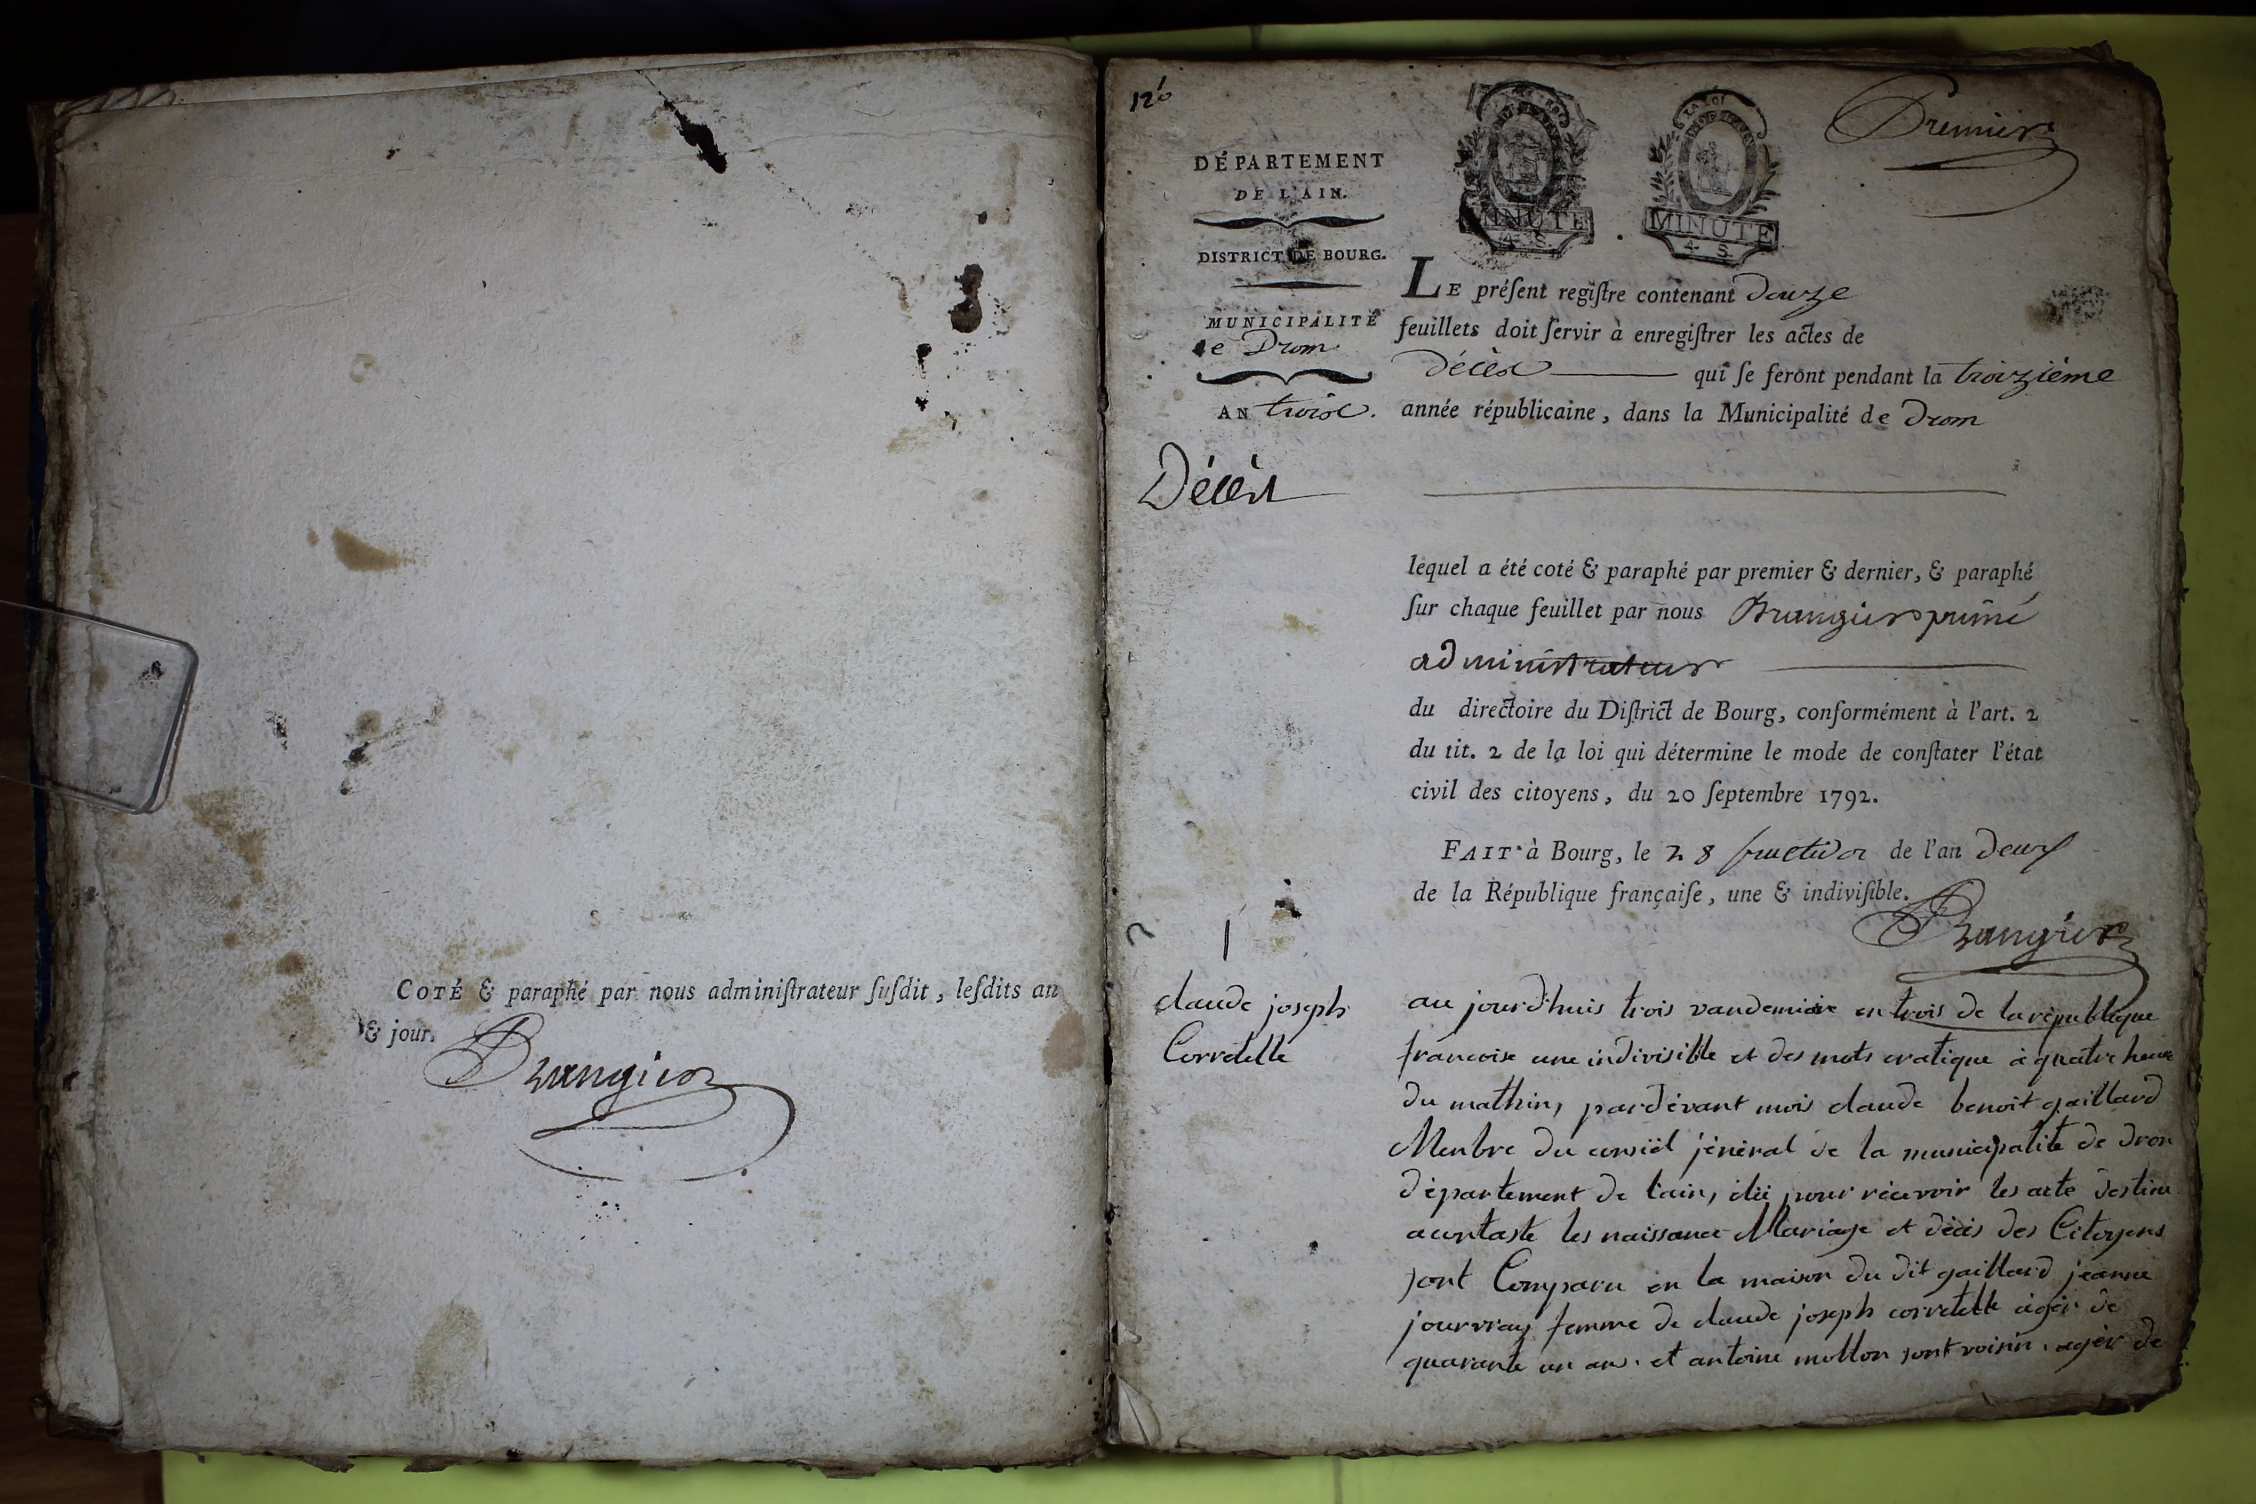 COTÉ & paraphé par nous adminiſtrateur ſuſdit, leſdits an
& jour.
Brangier
Premier
DÉPARTEMENT
DE L'AIN.
DISTRICT DE BOURG.
MUNICIPALITÉ
de Drom
AN troise.
Décès
MINUTE
4 S
LA LOI
MINUTE
4 S
LE préſent regiſtre contenant douze
feuillets doit ſervir à enregiſtrer les actes de
décès qui ſe feront pendant la troizième
année républicaine, dans la Municipalité de Drom
lequel a été coté & paraphé par premier & dernier, & paraphé
ſur chaque feuillet par nous Brangier
administrateur
du directoire du Diſtrict de Bourg, conformément à l'art. 2
du tit. 2 de la loi qui détermine le mode de conſtater l'état
civil des citoyens, du 20 ſeptembre 1792.
FAIT à Bourg, le 28 fructidor de l'an deux
de la République françaiſe, une & indiviſible.
Brangier
1
claude joseph
Corretelle
au jourd'huis trois vandemiaire en trois de la république
francoise une indivisible et des mots cratique à quatre heure
du mathin, pardévant mois claude benoit gaillard
Menbre du consiel jénéral de la municipalité de dron
département de l'ain, élü pour récevoir les acte destine
a contaste les naissance Mariage et décès des Citoyens
sont Comparu en la maison du dit gaillard jeanne
jourvray femme de claude joseph corretelle agér de
quarante un an. et antoine mollon sont voisin. agér de